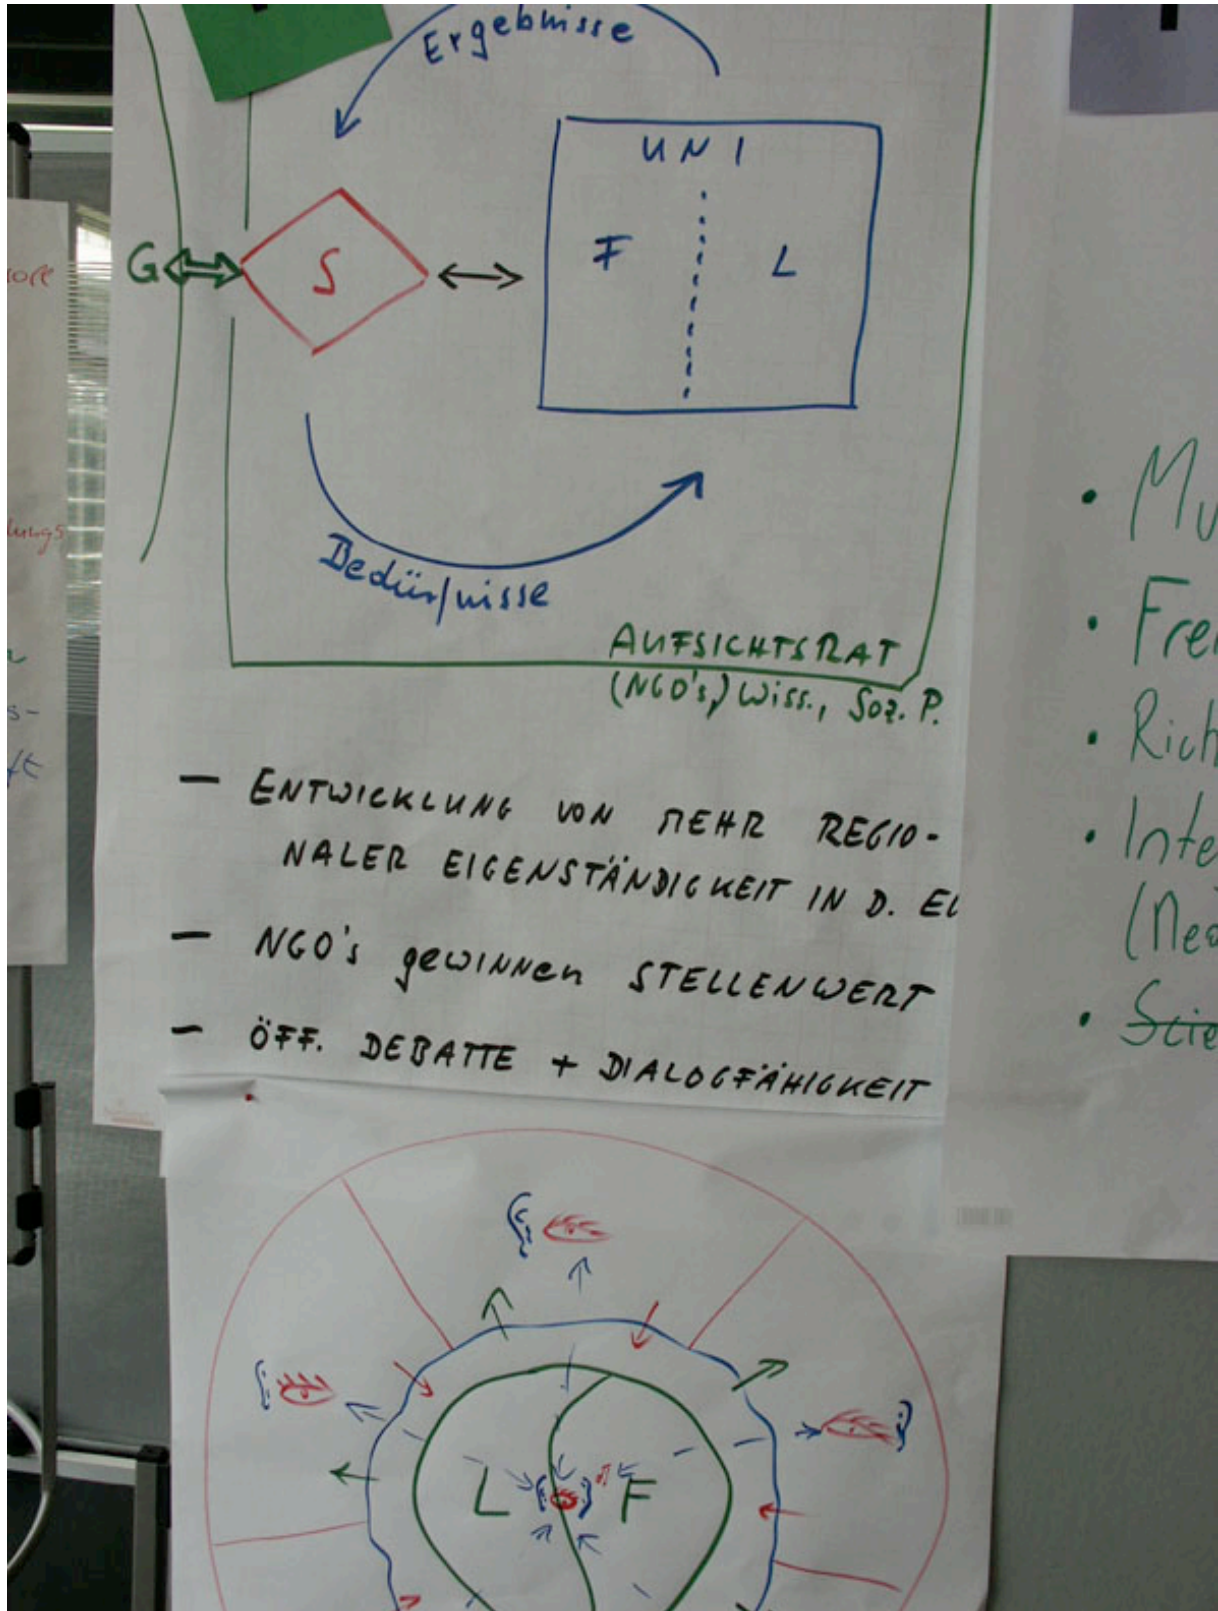 Ergebnisse
UNI
G
S
F
L
Bedürfnisse
AUFSICHTSRAT
(NGO's,) Wiss., Soz. P.
— ENTWICKLUNG VON MEHR REGIO-
NALER EIGENSTÄNDIGKEIT IN D.
— NGO's gewinnen STELLENWERT
— ÖFF. DEBATTE + DIALOGFÄHIGKEIT
L
F
lungs
s-
• Mu
• Frei
• Rich
• Inte
• Scie